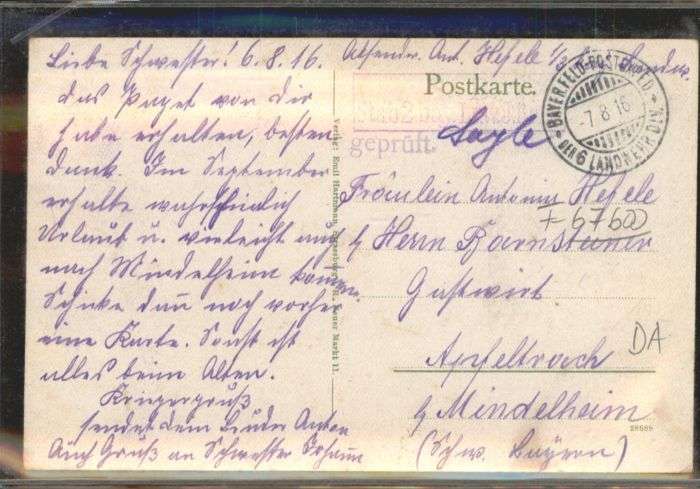 Liebe Schwester! 6.8.16.
das Paget von dir
habe erhalten, besten
dank. Im September
erhalte wahrscheinlich
Urlaub u. vielleicht
nach Mindelheim
Schicke dan noch vorher
eine Karte. Sonst ist
alles beim Alten.
Krieger gruß
sendet dein Bruder Anton
Auch Gruß an Schwester
Absender. Ant. Hefele
Postkarte.
geprüft.
BAYER.FELD-POSTEXPED
-7.8.16
DER 6 LANDWEHR DIV.
Fräulein Antonie Hefele
+ 67600
b/ Herrn
Gastwirt
DA
Apfeltrach
b/ Mindelheim
(Schw. Bayern)
Verlag: Emil Hartmann, Neuer Markt 11.